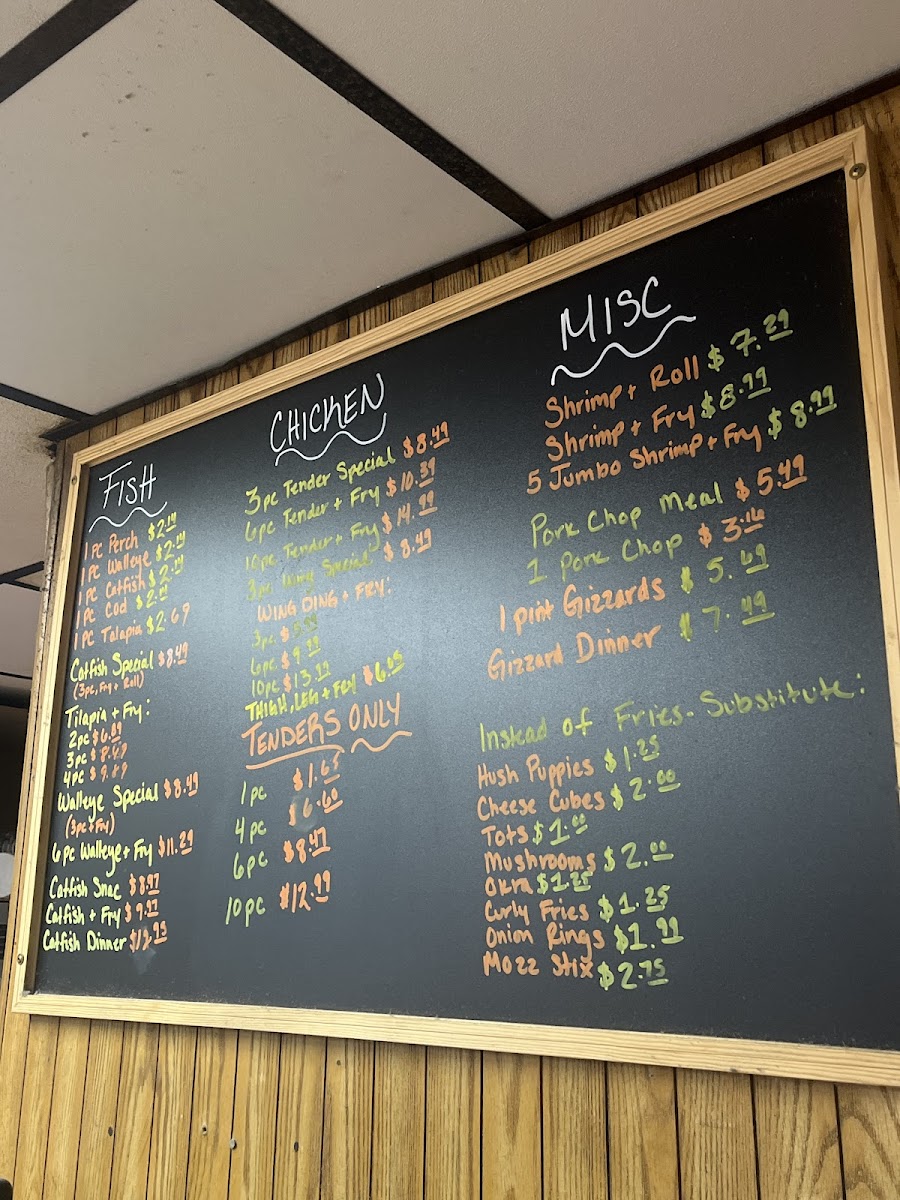 FISH
1 PC Perch
1 PC Walleye
1 PC Catfish
1 PC Cod
1 PC Talapia $2.69
Catfish Special $8.49
(3pc, Fry + Roll)
Tilapia + Fry:
2pc $6.89
3pc $8.49
4pc $9.89
Walleye Special $8.49
(3pc + Fry)
6 pc Walleye + Fry $11.29
Catfish Snac $8.97
Catfish + Fry
Catfish Dinner
CHICKEN
3 pc Tender Special $8.49
6 pc Tender + Fry $10.39
10 pc Tender + Fry $14.99
3 pc Wing Special $8.49
WING DING + FRY:
3pc
6pc
10pc $13.99
THIGH, LEG + FRY
TENDERS ONLY
1 pc $1.65
4 pc $6.60
6 pc $8.47
10 pc $12.99
MISC
Shrimp + Roll $7.29
Shrimp + Fry $8.99
5 Jumbo Shrimp + Fry $8.99
Pork Chop Meal $5.49
1 Pork Chop $3.16
1 pint Gizzards $5.69
Gizzard Dinner $7.49
Instead of Fries - Substitute:
Hush Puppies $1.25
Cheese Cubes $2.00
Tots $1.00
Mushrooms $2.00
Okra $1.25
Curly Fries $1.25
Onion Rings $1.99
Mozz Stix $2.75